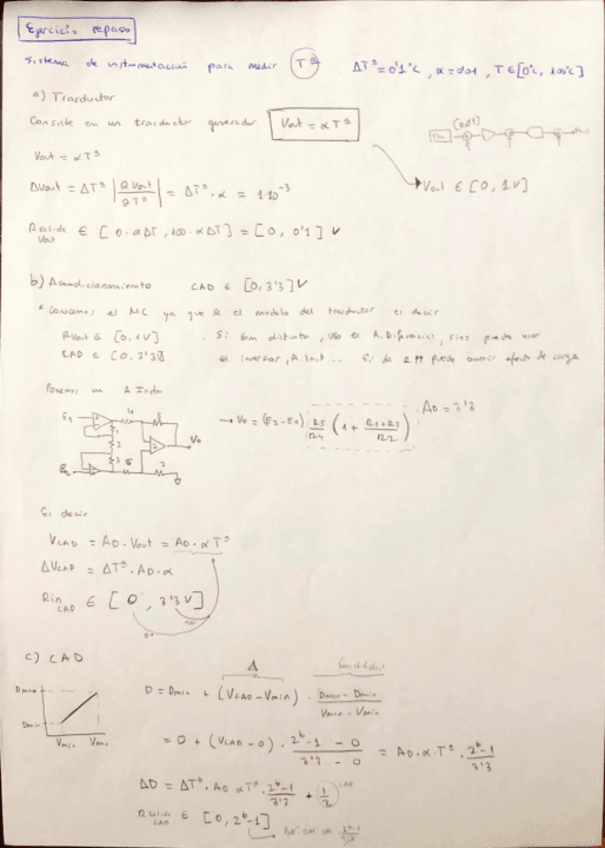 Ejercicio repaso
Sistema de instrumentación para medir Tª ΔTª=0'1ºC, α=0'01, T∈[0ºC, 100ºC]
a) Trasductor
Consiste en un trasductor generador Vout = αTª
Vout = αTª
Vout ∈ [0, 1V]
ΔVout = ΔTª |∂Vout/∂Tª| = ΔTª·α = 1·10⁻³
Rsalida Vout ∈ [0·αΔT, 100·αΔT] = [0, 0'1] V
b) Acondicionamiento CAD ∈ [0, 3'3] V
* Conocemos el MC ya que sé el modelo del trasductor es decir
RVout ∈ [0, 1V] . Si son distintos, uso el A. Diferencial, sino puedo usar
CAD ∈ [0, 3'3V] el inversor, A. Inst .. Si da Rᴨ puede ocurrir efecto de carga
Ponemos un A Instr
E1 4 5
1
2
3 6 7
E2 Vo
→ Vo = (E2-E1) R5/R4 (1 + R1+R3/R2) AD = 3'3
Es decir
VCAD = AD·Vout = AD·αTª
ΔVCAD = ΔTª·AD·α
Rin CAD ∈ [0, 3'3V]
c) CAD
Δ Sensibilidad
Dmax
Dmin
Vmin Vmax
D = Dmin + (VCAD-Vmin) · Dmax - Dmin/Vmax - Vmin
= 0 + (VCAD-0) · 2ᵇ-1 - 0/3'3 - 0 = AD·α·Tª · 2ᵇ-1/3'3
ΔD = ΔTª·AD αTª·2ᵇ-1/3'3 + 1/2 CAD
Rsalida CAD ∈ [0, 2ᵇ-1]